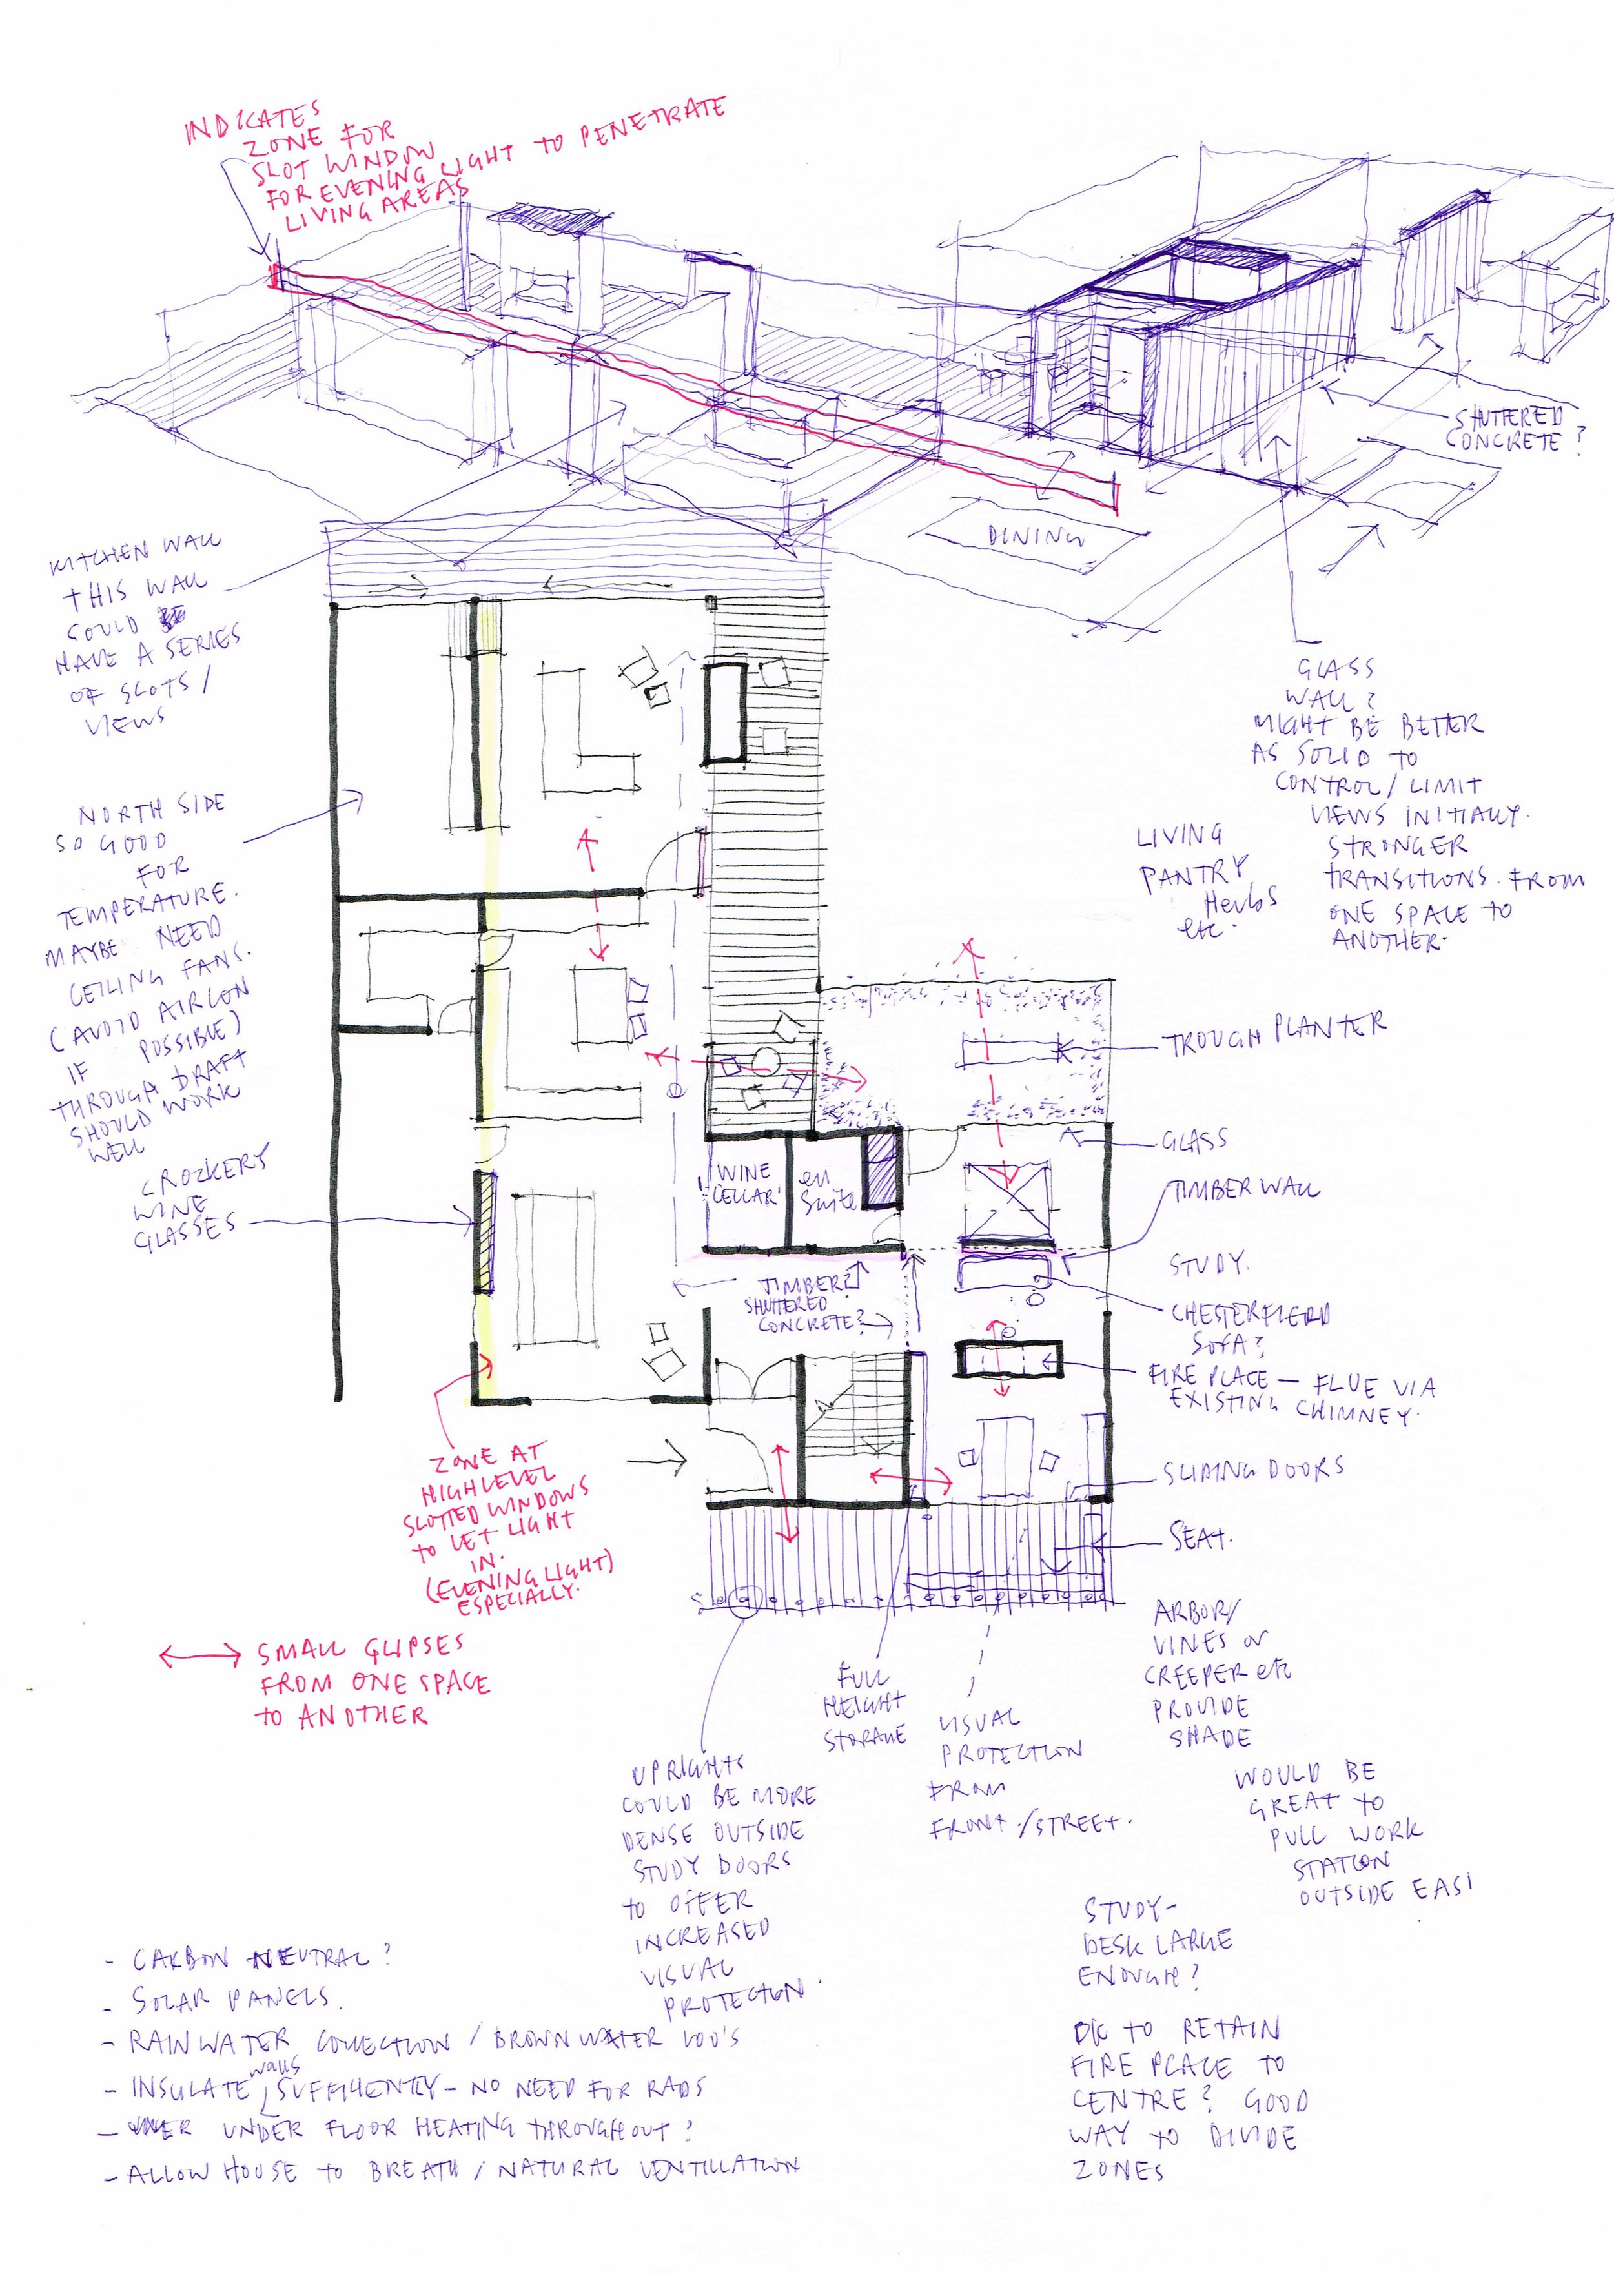 INDICATES
ZONE FOR
SLOT WINDOW
FOR EVENING LIGHT TO PENETRATE
LIVING AREAS
SHUTTERED
CONCRETE?
DINING
KITCHEN WALL
THIS WALL
COULD BE
HAVE A SERIES
OF SLOTS /
VIEWS
GLASS
WALL?
MIGHT BE BETTER
AS SOLID TO
CONTROL / LIMIT
VIEWS INITIALLY.
STRONGER
TRANSITIONS FROM
ONE SPACE TO
ANOTHER.
NORTH SIDE
SO GOOD
FOR
TEMPERATURE.
MAYBE NEED
CEILING FANS.
(AVOID AIRCON
IF POSSIBLE)
THROUGH DRAFT
SHOULD WORK
WELL
LIVING
PANTRY
Herbs
etc.
TROUGH PLANTER
GLASS
CROCKERY
WINE
GLASSES
WINE
CELLAR
en
Suite
TIMBER WALL
STUDY.
TIMBER?
SHUTTERED
CONCRETE?
CHESTERFIELD
SOFA?
FIRE PLACE - FLUE VIA
EXISTING CHIMNEY.
ZONE AT
HIGH LEVEL
SLOTTED WINDOWS
TO LET LIGHT
IN.
(EVENING LIGHT)
ESPECIALLY.
SLIDING DOORS
SEAT.
SMALL GLIPSES
FROM ONE SPACE
TO ANOTHER
ARBOR/
VINES or
CREEPER etc
PROVIDE
SHADE
FULL
HEIGHT
STORAGE
VISUAL
PROTECTION
FROM
FRONT/STREET.
UPRIGHTS
COULD BE MORE
DENSE OUTSIDE
STUDY DOORS
TO OFFER
INCREASED
VISUAL
PROTECTION.
WOULD BE
GREAT TO
PULL WORK
STATION
OUTSIDE EASI
STUDY-
DESK LARGE
ENOUGH?
OK TO RETAIN
FIRE PLACE TO
CENTRE? GOOD
WAY TO DIVIDE
ZONES
- CARBON NEUTRAL?
- SOLAR PANELS.
- RAINWATER COLLECTION / BROWN WATER LOO'S
- INSULATE walls SUFFICIENTLY - NO NEED FOR RADS
- UNDER FLOOR HEATING THROUGHOUT?
- ALLOW HOUSE TO BREATH / NATURAL VENTILLATION